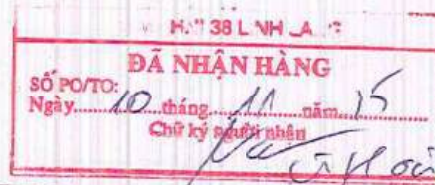 38 LINH LANG
ĐÃ NHẬN HÀNG
SỐ PO/TO:
Ngày......10...tháng....11....năm...15
Chữ ký người nhận